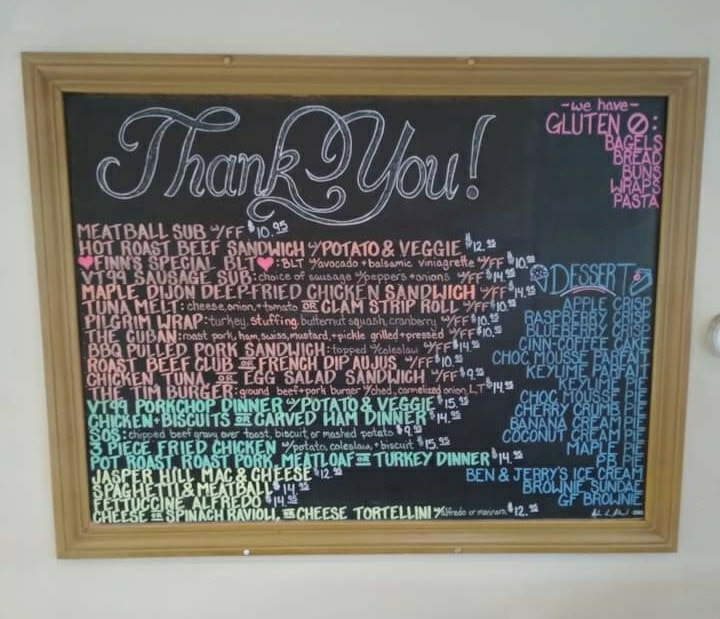 Thank You!
-we have-
GLUTEN
BAGELS
BREAD
BUNS
WRAPS
PASTA
MEATBALL SUB W/FF $10.95
HOT ROAST BEEF SANDWICH W/POTATO & VEGGIE $12.95
FINN'S SPECIAL BLT : BLT W/avocado + balsamic viniagrette W/FF $10.95
VT99 SAUSAGE SUB: choice of sausage W/peppers + onions W/FF $14.95
MAPLE DIJON DEEP-FRIED CHICKEN SANDWICH W/FF $14.95
TUNA MELT: cheese, onion, + tomato OR CLAM STRIP ROLL W/FF $10.95
PILGRIM WRAP: turkey, stuffing, butternut squash, cranberry W/FF $10.95
THE CUBAN: roast pork, ham, swiss, mustard, + pickle grilled + pressed W/FF $10.95
BBQ PULLED PORK SANDWICH: topped W/coleslaw W/FF $14.95
ROAST BEEF CLUB OR FRENCH DIP AUJUS W/FF $10.95
CHICKEN, TUNA, OR EGG SALAD SANDWICH W/FF $9.95
THE TIM BURGER: ground beef + pork burger W/ched, carmelized onion, L,T $14.95
VT99 PORKCHOP DINNER W/POTATO & VEGGIE $15.95
CHICKEN + BISCUITS OR CARVED HAM DINNER $14.95
SOS: chipped beef gravy over toast, biscuit or mashed potato $9.95
3 PIECE FRIED CHICKEN W/potato, coleslaw, + biscuit $15.95
POT ROAST, ROAST PORK, MEATLOAF OR TURKEY DINNER $14.95
JASPER HILL MAC & CHEESE $12.95
SPAGHETTI & MEATBALL $14.95
FETTUCCINE ALFREDO $14.95
CHEESE OR SPINACH RAVIOLI, OR CHEESE TORTELLINI W/alfredo or marinara $12.95
DESSERT
APPLE CRISP
RASPBERRY CRISP
BLUEBERRY CRISP
CINN-COFFEE CAKE
CHOC MOUSSE PARFAIT
KEYLIME PARFAIT
KEYLIME PIE
CHOC MOUSSE PIE
CHERRY CRUMB PIE
BANANA CREAM PIE
COCONUT CREAM PIE
MAPLE PIE
PB PIE
BEN & JERRY'S ICE CREAM
BROWNIE SUNDAE
GF BROWNIE